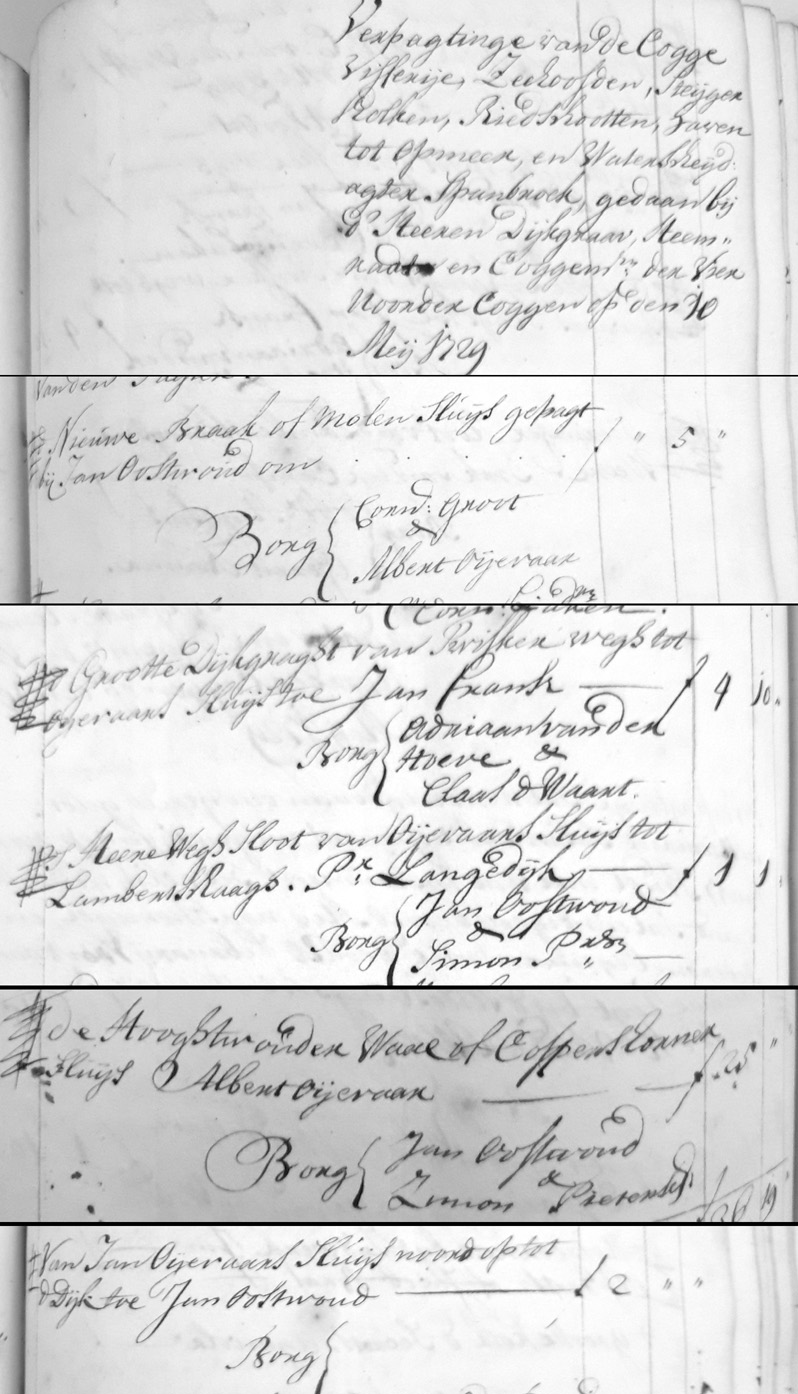 Verpagtinge van de Cogge
Visserije, Zeehoofden, Steyger
Kolken, Riedschootten, haven
tot Opmeer, en Waterscheyd:
agter Spanbroek, gedaan bij
d'Heeren Dijkgraav, Heem-
raat en Coggem.rs der Vier
Noorder Coggen op den 10
Meij 1729
van den
Nieuwe Braak of Molen Sluijs gepagt
bij Jan Oostwoud om f " 5 "
Borg { Corn: Groot
&
Albert Oijevaar
Grootte Dijkgraght van wegh tot
oyevaars Sluijs toe Jan Frank — f 4 10„
Borg { Adriaan van der
Hoeve &
Claas d Waart.
Heere Wegh Sloot van Oijevaars Sluijs tot
Lambertschaagh. Pr. Langedijk — f 1 1
Borg { Jan Oostwoud
&
Simon Pietersz —
de Hooghtwouder Waal of
Sluijs Albert Oijevaar — f 25 "
Borg { Jan Oostwoud
&
Simon Pietersz
f 26 19
Van Jan Oijevaars Sluijs noord op tot
d Dijk toe Jan Oostwoud — f 2 " "
Borg {